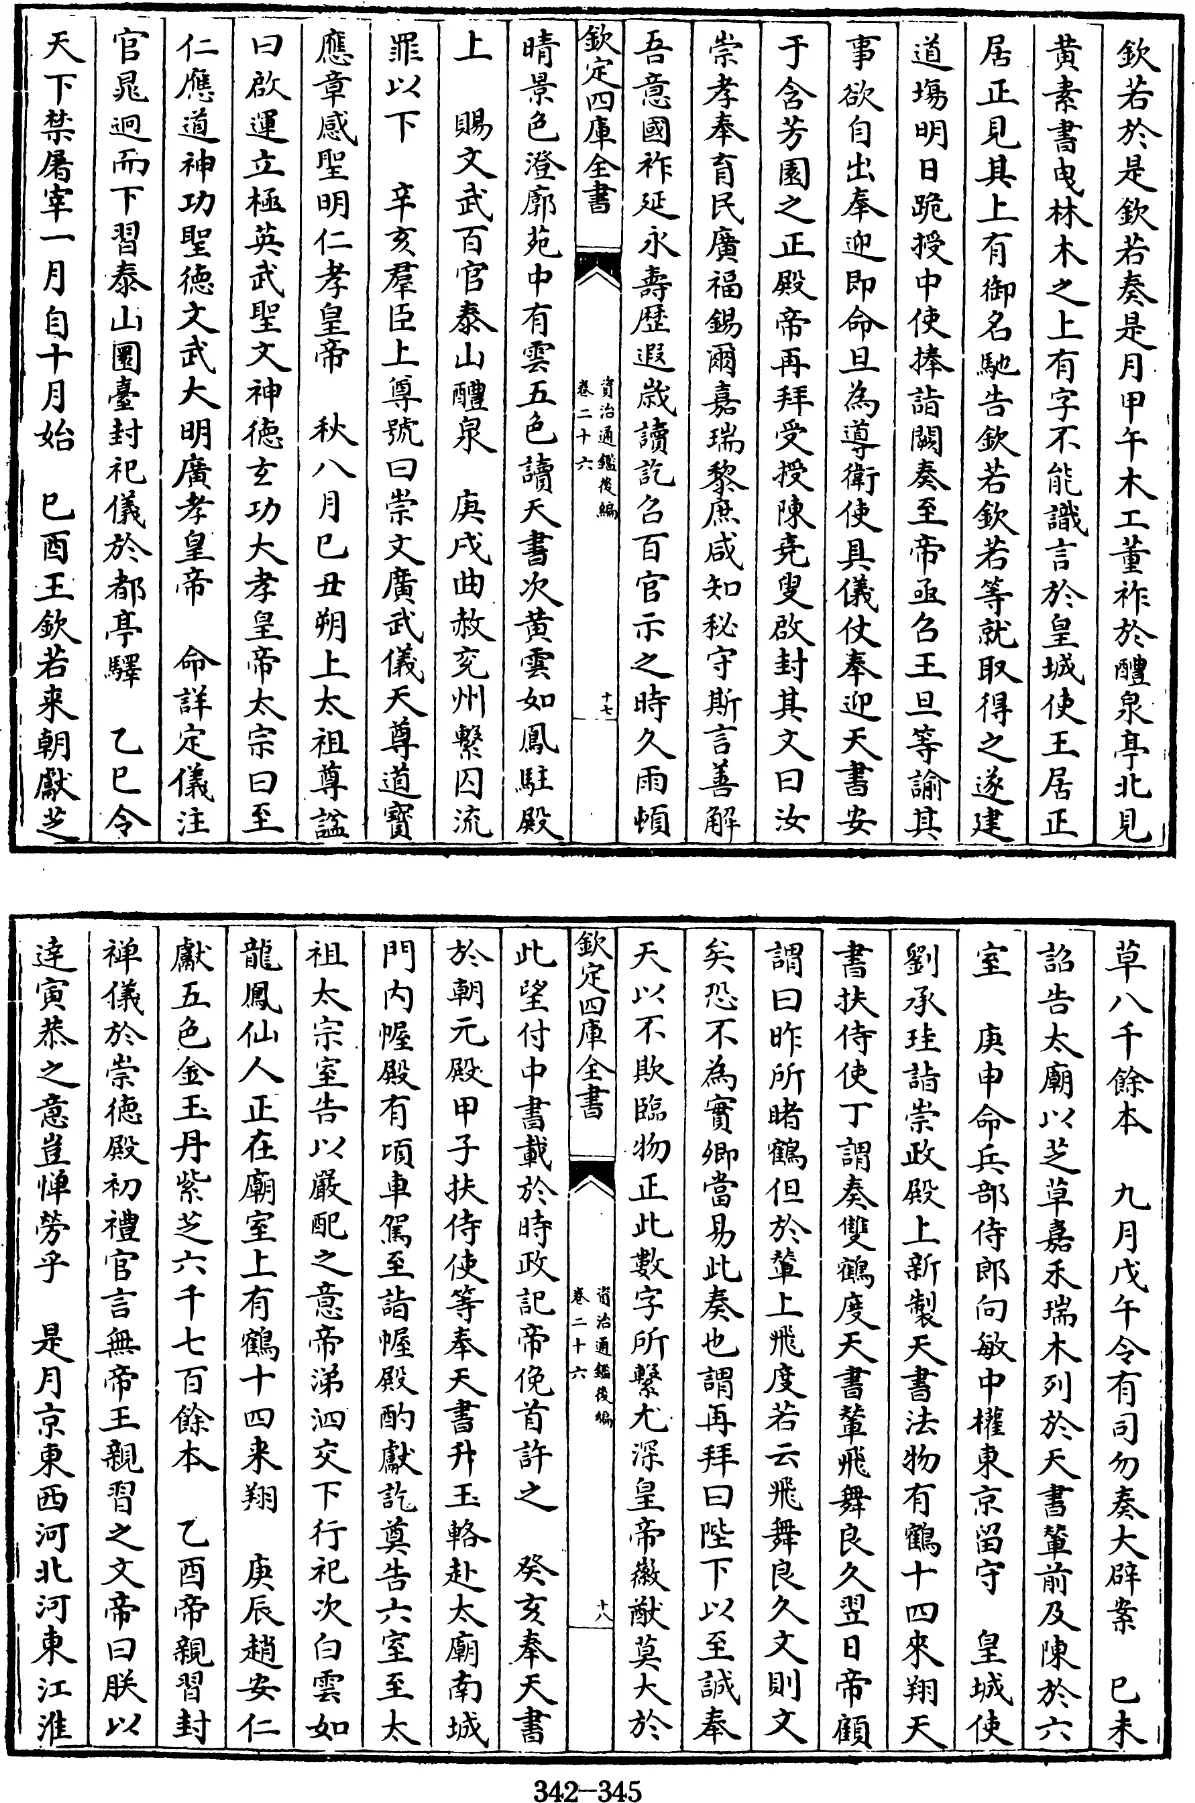 欽若於是欽若奏是月甲午木工董祚於醴泉亭北見
黄素書曳林木之上有字不能識言於皇城使王居正
居正見其上有御名馳告欽若欽若等就取得之遂建
道塲明日跪授中使捧詣闕奏至帝亟召王旦等諭其
事欲自出奉迎即命旦為導衛使具儀仗奉迎天書安
于含芳園之正殿帝再拜受授陳堯叟啟封其文曰汝
崇孝奉育民廣福錫爾嘉瑞黎庶咸知秘守斯言善解
吾意國祚延永壽歴遐歳讀訖召百官示之時久雨頓
欽定四庫全書
資治通鑑後編
卷二十六
十七
晴景色澄廓苑中有雲五色讀天書次黄雲如鳳駐殿
上　賜文武百官泰山醴泉　庚戌曲赦兖州繫囚流
罪以下　辛亥羣臣上尊號曰崇文廣武儀天尊道寳
應章感聖明仁孝皇帝　秋八月己丑朔上太祖尊諡
曰啟運立極英武聖文神徳玄功大孝皇帝太宗曰至
仁應道神功聖徳文武大明廣孝皇帝　命詳定儀注
官晁迥而下習泰山圜臺封祀儀於都亭驛　乙巳令
天下禁屠宰一月自十月始　己酉王欽若来朝獻芝
草八千餘本　九月戊午令有司勿奏大辟案　己未
詔告太廟以芝草嘉禾瑞木列於天書輦前及陳於六
室　庚申命兵部侍郎向敏中權東京留守　皇城使
劉承珪詣崇政殿上新製天書法物有鶴十四來翔天
書扶侍使丁謂奏雙鶴度天書輦飛舞良久翌日帝顧
謂曰昨所睹鶴但於輦上飛度若云飛舞良久文則文
矣恐不為實卿當易此奏也謂再拜曰陛下以至誠奉
天以不欺臨物正此數字所繫尤深皇帝徽猷莫大於
欽定四庫全書
資治通鑑後編
卷二十六
十八
此望付中書載於時政記帝俛首許之　癸亥奉天書
於朝元殿甲子扶侍使等奉天書升玉輅赴太廟南城
門内幄殿有頃車駕至詣幄殿酌獻訖奠告六室至太
祖太宗室告以嚴配之意帝涕泗交下行祀次白雲如
龍鳳仙人正在廟室上有鶴十四来翔　庚辰趙安仁
獻五色金玉丹紫芝六千七百餘本　乙酉帝親習封
禅儀於崇徳殿初禮官言無帝王親習之文帝曰朕以
逹寅恭之意豈憚勞乎　是月京東西河北河東江淮
342-345